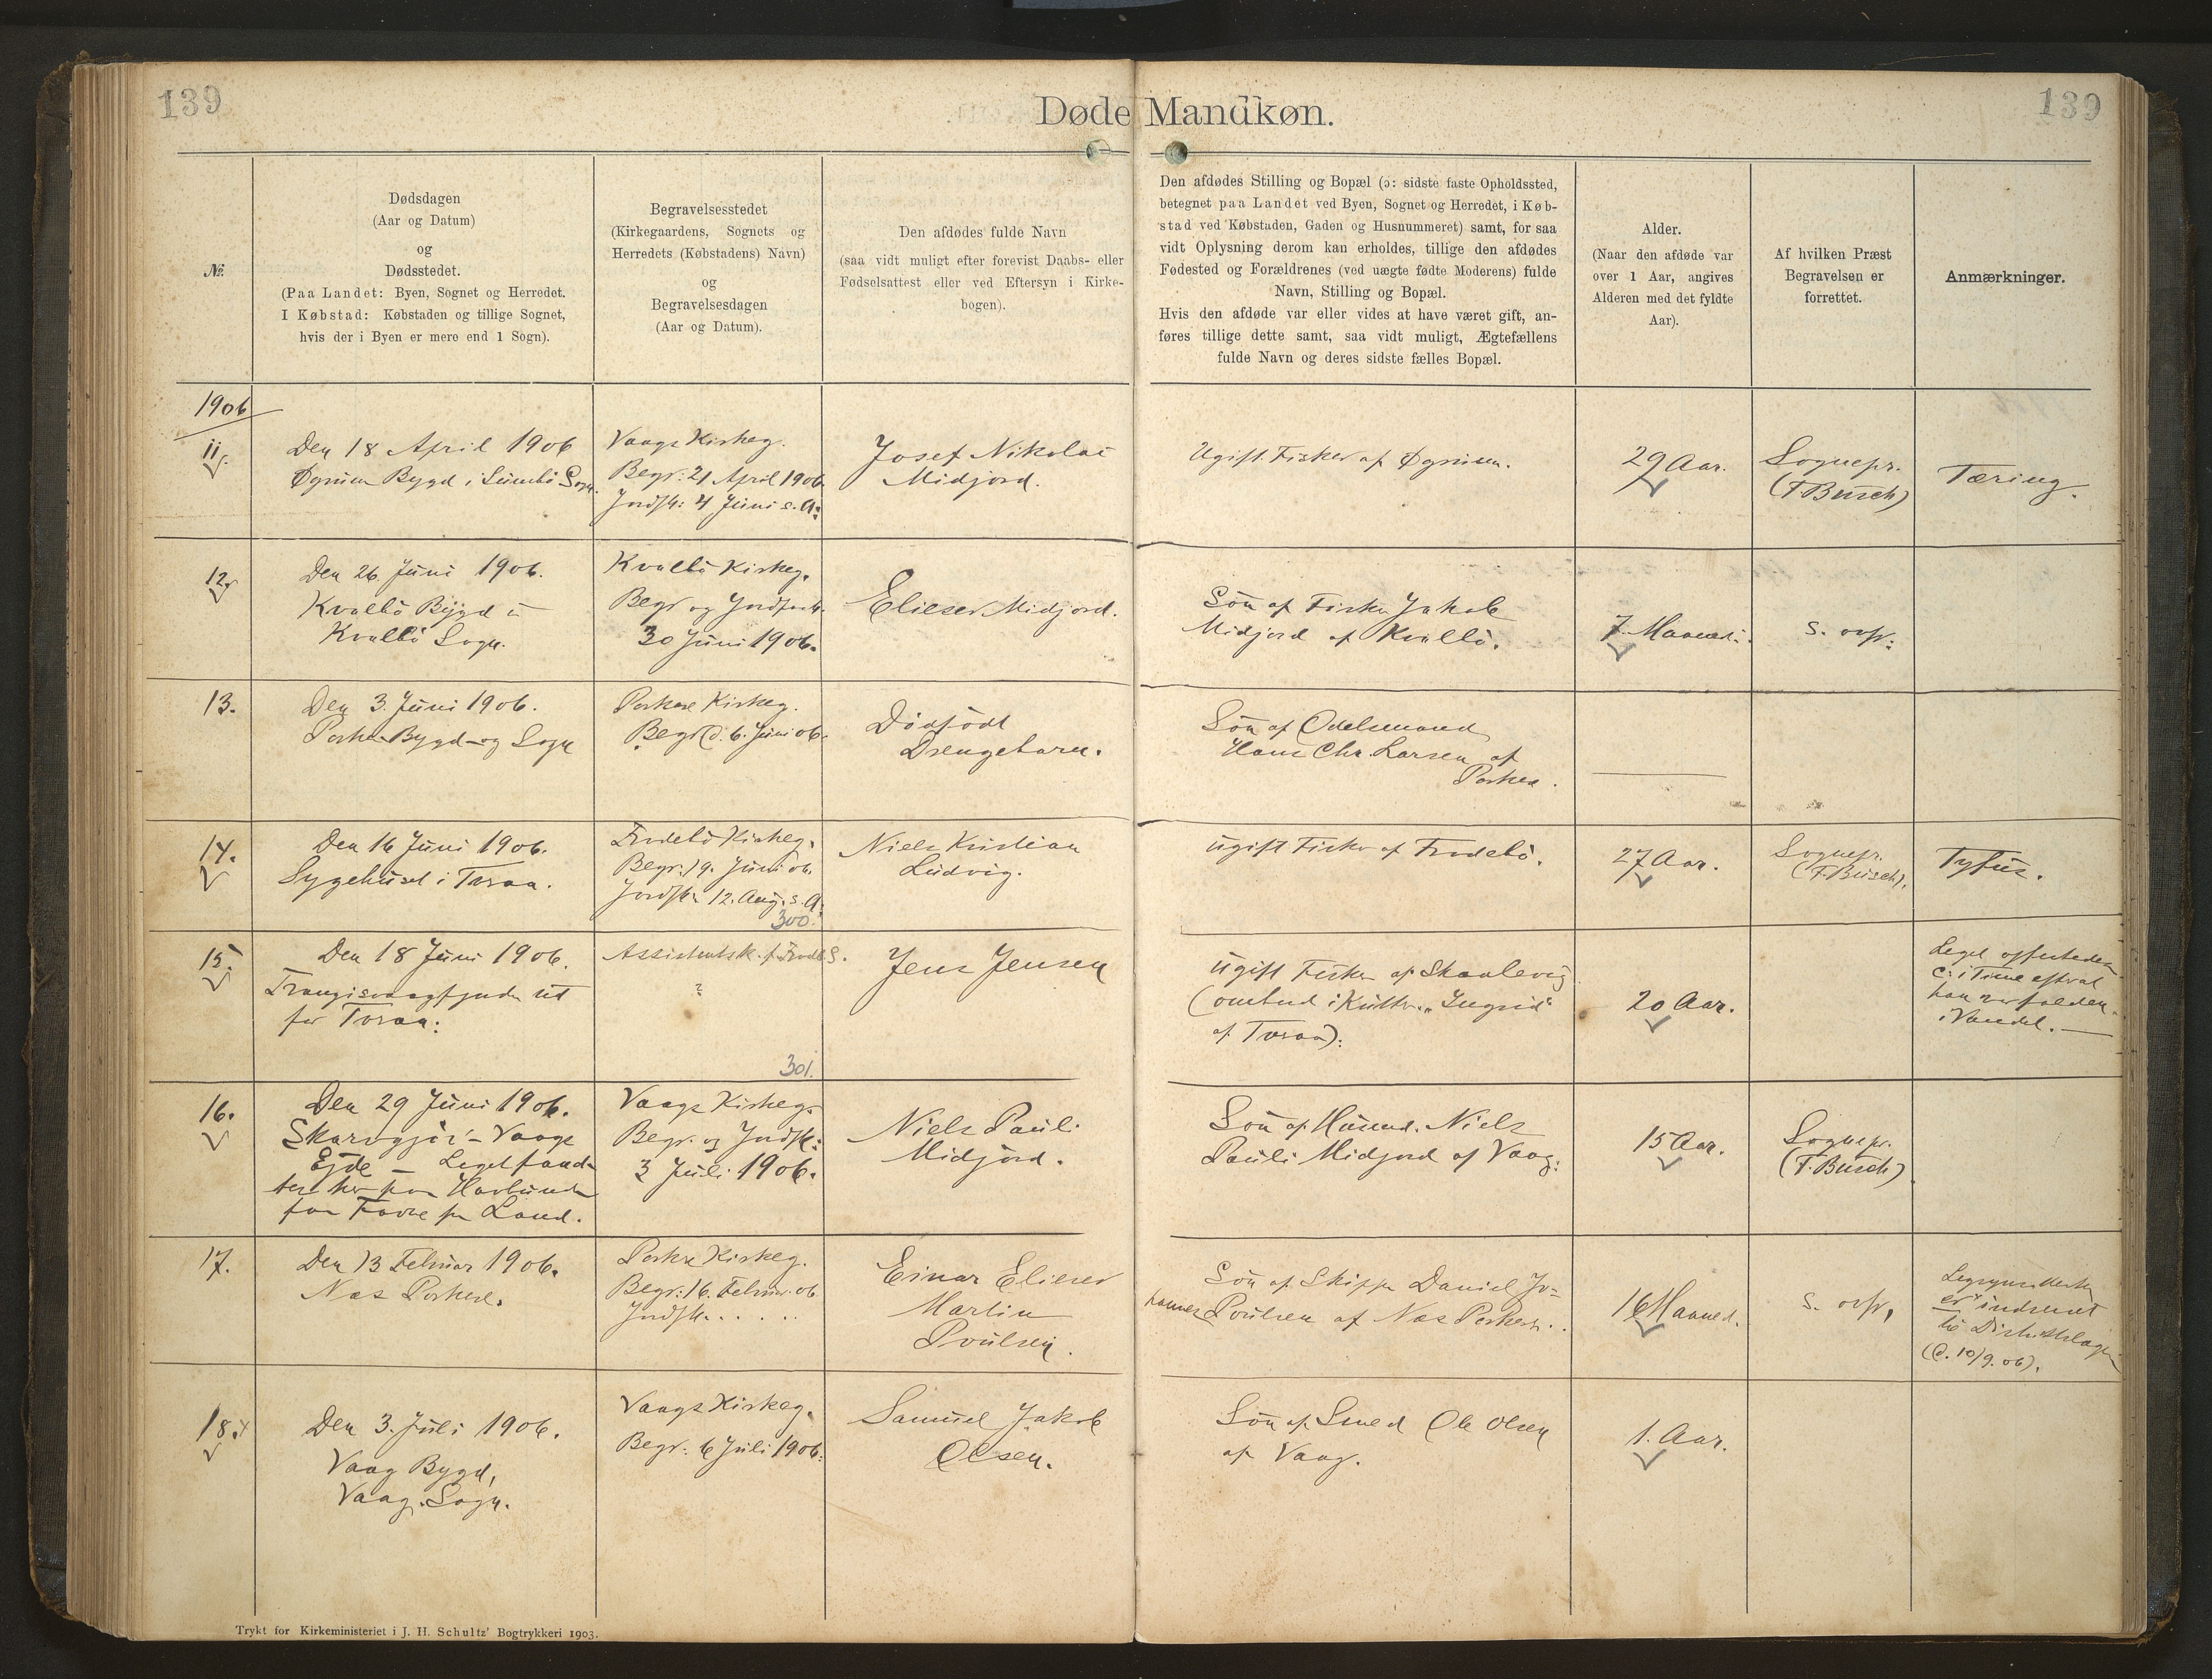 139
Døde Mandkøn.
139
№
Dødsdagen
(Aar og Datum)
og
Dødsstedet.
(Paa Landet: Byen, Sognet og Herredet.
I Købstad: Købstaden og tillige Sognet,
hvis der i Byen er mere end 1 Sogn).
Begravelsesstedet
(Kirkegaardens, Sognets og
Herredets (Købstadens) Navn)
og
Begravelsesdagen
(Aar og Datum).
Den afdødes fulde Navn
(saa vidt muligt efter forevist Daabs- eller
Fødselsattest eller ved Eftersyn i Kirke-
bogen).
Den afdødes Stilling og Bopæl (ɔ: sidste faste Opholdssted,
betegnet paa Landet ved Byen, Sognet og Herredet, i Køb-
stad ved Købstaden, Gaden og Husnummeret) samt, for saa
vidt Oplysning derom kan erholdes, tillige den afdødes
Fødested og Forældrenes (ved uægte fødte Moderens) fulde
Navn, Stilling og Bopæl.
Hvis den afdøde var eller vides at have været gift, an-
føres tillige dette samt, saa vidt muligt, Ægtefællens
fulde Navn og deres sidste fælles Bopæl.
Alder.
(Naar den afdøde var
over 1 Aar, angives
Alderen med det fyldte
Aar).
Af hvilken Præst
Begravelsen er
forrettet.
Anmærkninger.
1906
11.
Den 18 April 1906
Øgnum Bygd i Sumbö Sogn.
Vaags Kirkeg.
Begr: 21 April 1906
Jordfk: 4 Juni s. A:
Josef Nikolai
Midjord.
Ugift Fisker af Øgnum.
29 Aar.
Sognepr.
(F. Busch)
Tæring.
12.
Den 26. Juni 1906.
Kvalbö Bygd i
Kvalbö Sogn.
Kvalbö Kirkeg.
Begr og Jordfk.
30 Juni 1906.
Elieser Midjord.
Sön af Fisker Jakob
Midjord af Kvalbö.
7. Maaned.
s. ovfr:
13.
Den 3. Juni 1906.
Porkere Bygd og Sogn
Porkere Kirkeg.
Begr d. 6. Juni 06.
Dödfödt
Drengebarn.
Sön af Odelsmand
Hans Chr. Larsen af
Porkere.
14.
Den 16 Juni 1906.
Sygehuset i Tveraa.
Frodebö Kirkeg.
Begr: 19. Juni 06.
Jordfk: 12. Aug. s. A.
300.
Niels Kristian
Ludvig.
Ugift Fisker af Frodebö.
27 Aar.
Sognepr.
(F. Busch).
Tyfus.
15.
Den 18 Juni 1906.
Trangisvaagfjorden ud
for Tveraa:
?
301.
Jens Jensen
Ugift Fisker af Skaalevig
(ombord i Kutter „Ingrid“
af Tveraa):
20 Aar.
han var falden
i Vandet.
16.
Den 29 Juni 1906.
Vaags
Ejde
Land.
Vaags Kirkeg.
Begr. og Jordfk:
3 Juli 1906.
Niels Pauli
Midjord.
Sön af Husmd. Niels
Pauli Midjord af Vaag:
15 Aar.
Sognepr.
(F. Busch)
17.
Den 13 Februar 1906.
Næs Porkere.
Porkere Kirkeg.
Begr: 16. Februar 06
Jordfk. . . . .
Einar Elieser
Martin
Poulsen.
Sön af Skipper Daniel Jo=
hannes Poulsen af Næs Porkere.
16 Maaned.
s. ovfr.
er indsendt
til Distriktslægen
(d. 10/9. 06).
18.
Den 3. Juli 1906.
Vaag Bygd,
Vaag Sogn.
Vaags Kirkeg.
Begr: 6 Juli 1906:
Samuel Jakob
Olsen.
Sön af Smed Ole Olsen
af Vaag.
1. Aar.
Trykt for Kirkeministeriet i J. H. Schultz' Bogtrykkeri 1903.